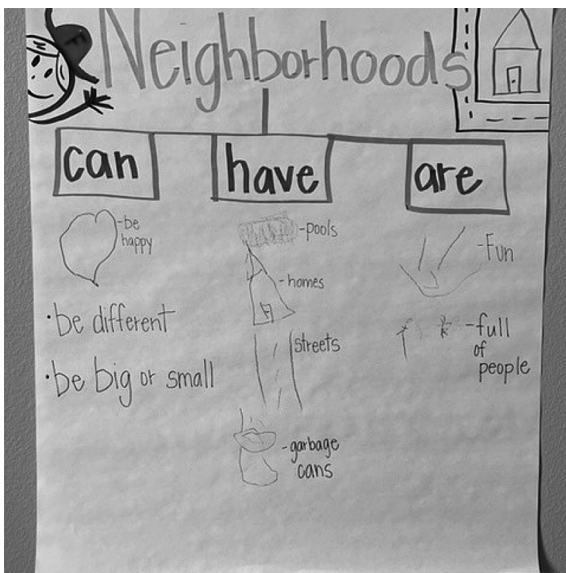 Neighborhoods
can
have
are
-be
happy
·be different
·be big or small
-pools
-homes
streets
-garbage
cans
-Fun
-full
of
people